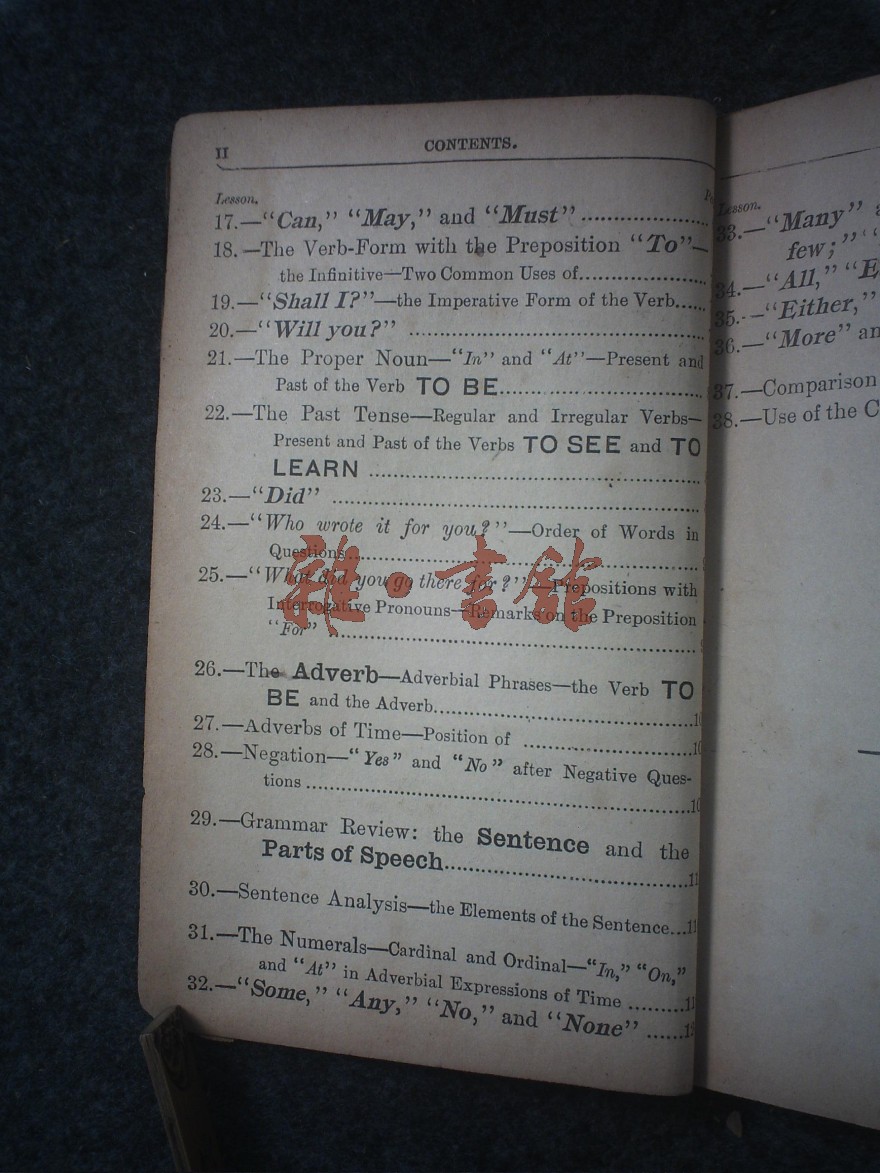 II
CONTENTS.
Lesson.
17.—"Can," "May," and "Must"
18.—The Verb-Form with the Preposition "To"—
the Infinitive—Two Common Uses of
19.—"Shall I?"—the Imperative Form of the Verb
20.—"Will you?"
21.—The Proper Noun—"In" and "At"—Present and
Past of the Verb TO BE
22.—The Past Tense—Regular and Irregular Verbs—
Present and Past of the Verbs TO SEE and TO
LEARN
23.—"Did"
24.—"Who wrote it for you?"—Order of Words in
Questions
25.—"What did you go there for?"—Prepositions with
Interrogative Pronouns—Remarks on the Preposition
"For"
26.—The Adverb—Adverbial Phrases—the Verb TO
BE and the Adverb
27.—Adverbs of Time—Position of
28.—Negation—"Yes" and "No" after Negative Ques-
tions
29.—Grammar Review: the Sentence and the
Parts of Speech
30.—Sentence Analysis—the Elements of the Sentence
31.—The Numerals—Cardinal and Ordinal—"In," "On,"
and "At" in Adverbial Expressions of Time
32.—"Some," "Any," "No," and "None"
Lesson.
33.—"Many"
few;"
34.—"All,"
35.—"Either,"
36.—"More" an
37.—Comparison
38.—Use of the C
雜·書館